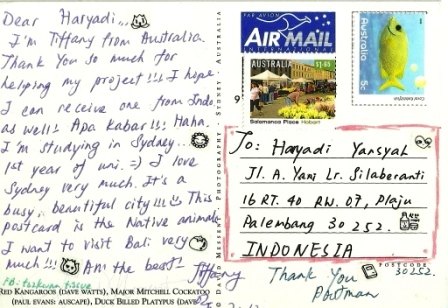 Dear Haryadi...
I'm Tiffany from Australia.
Thank You so much for
helping my project!!! I hope
I can receive one from Indo
as well! Apa kabar!!! Haha.
I'm studying in Sydney...
1st year of uni. =) I love
Sydney very much. It's a
busy, beautiful city!!!! This
postcard is the Native animals
I want to visit Bali very
much!!! Am the best! - Tiffany
FB:
RED KANGAROOS (DAVE WATTS), MAJOR MITCHELL COCKATOO
(PAUL EVANS: AUSCAPE), DUCK BILLED PLATYPUS (DAVE
DAVID MESSENT PHOTOGRAPHY · SYDNEY · AUSTRALIA
PAR AVION
AIR MAIL
INTERNATIONAL
AUSTRALIA
$1.45
Salamanca Place Hobart
Australia
5c
To: Haryadi Yansyah
Jl. A. Yani Lr. Silaberanti
16 RT. 40 RW. 07, Plaju
Palembang 30252.
INDONESIA
POSTCODE
30252.
Thank You
Postman